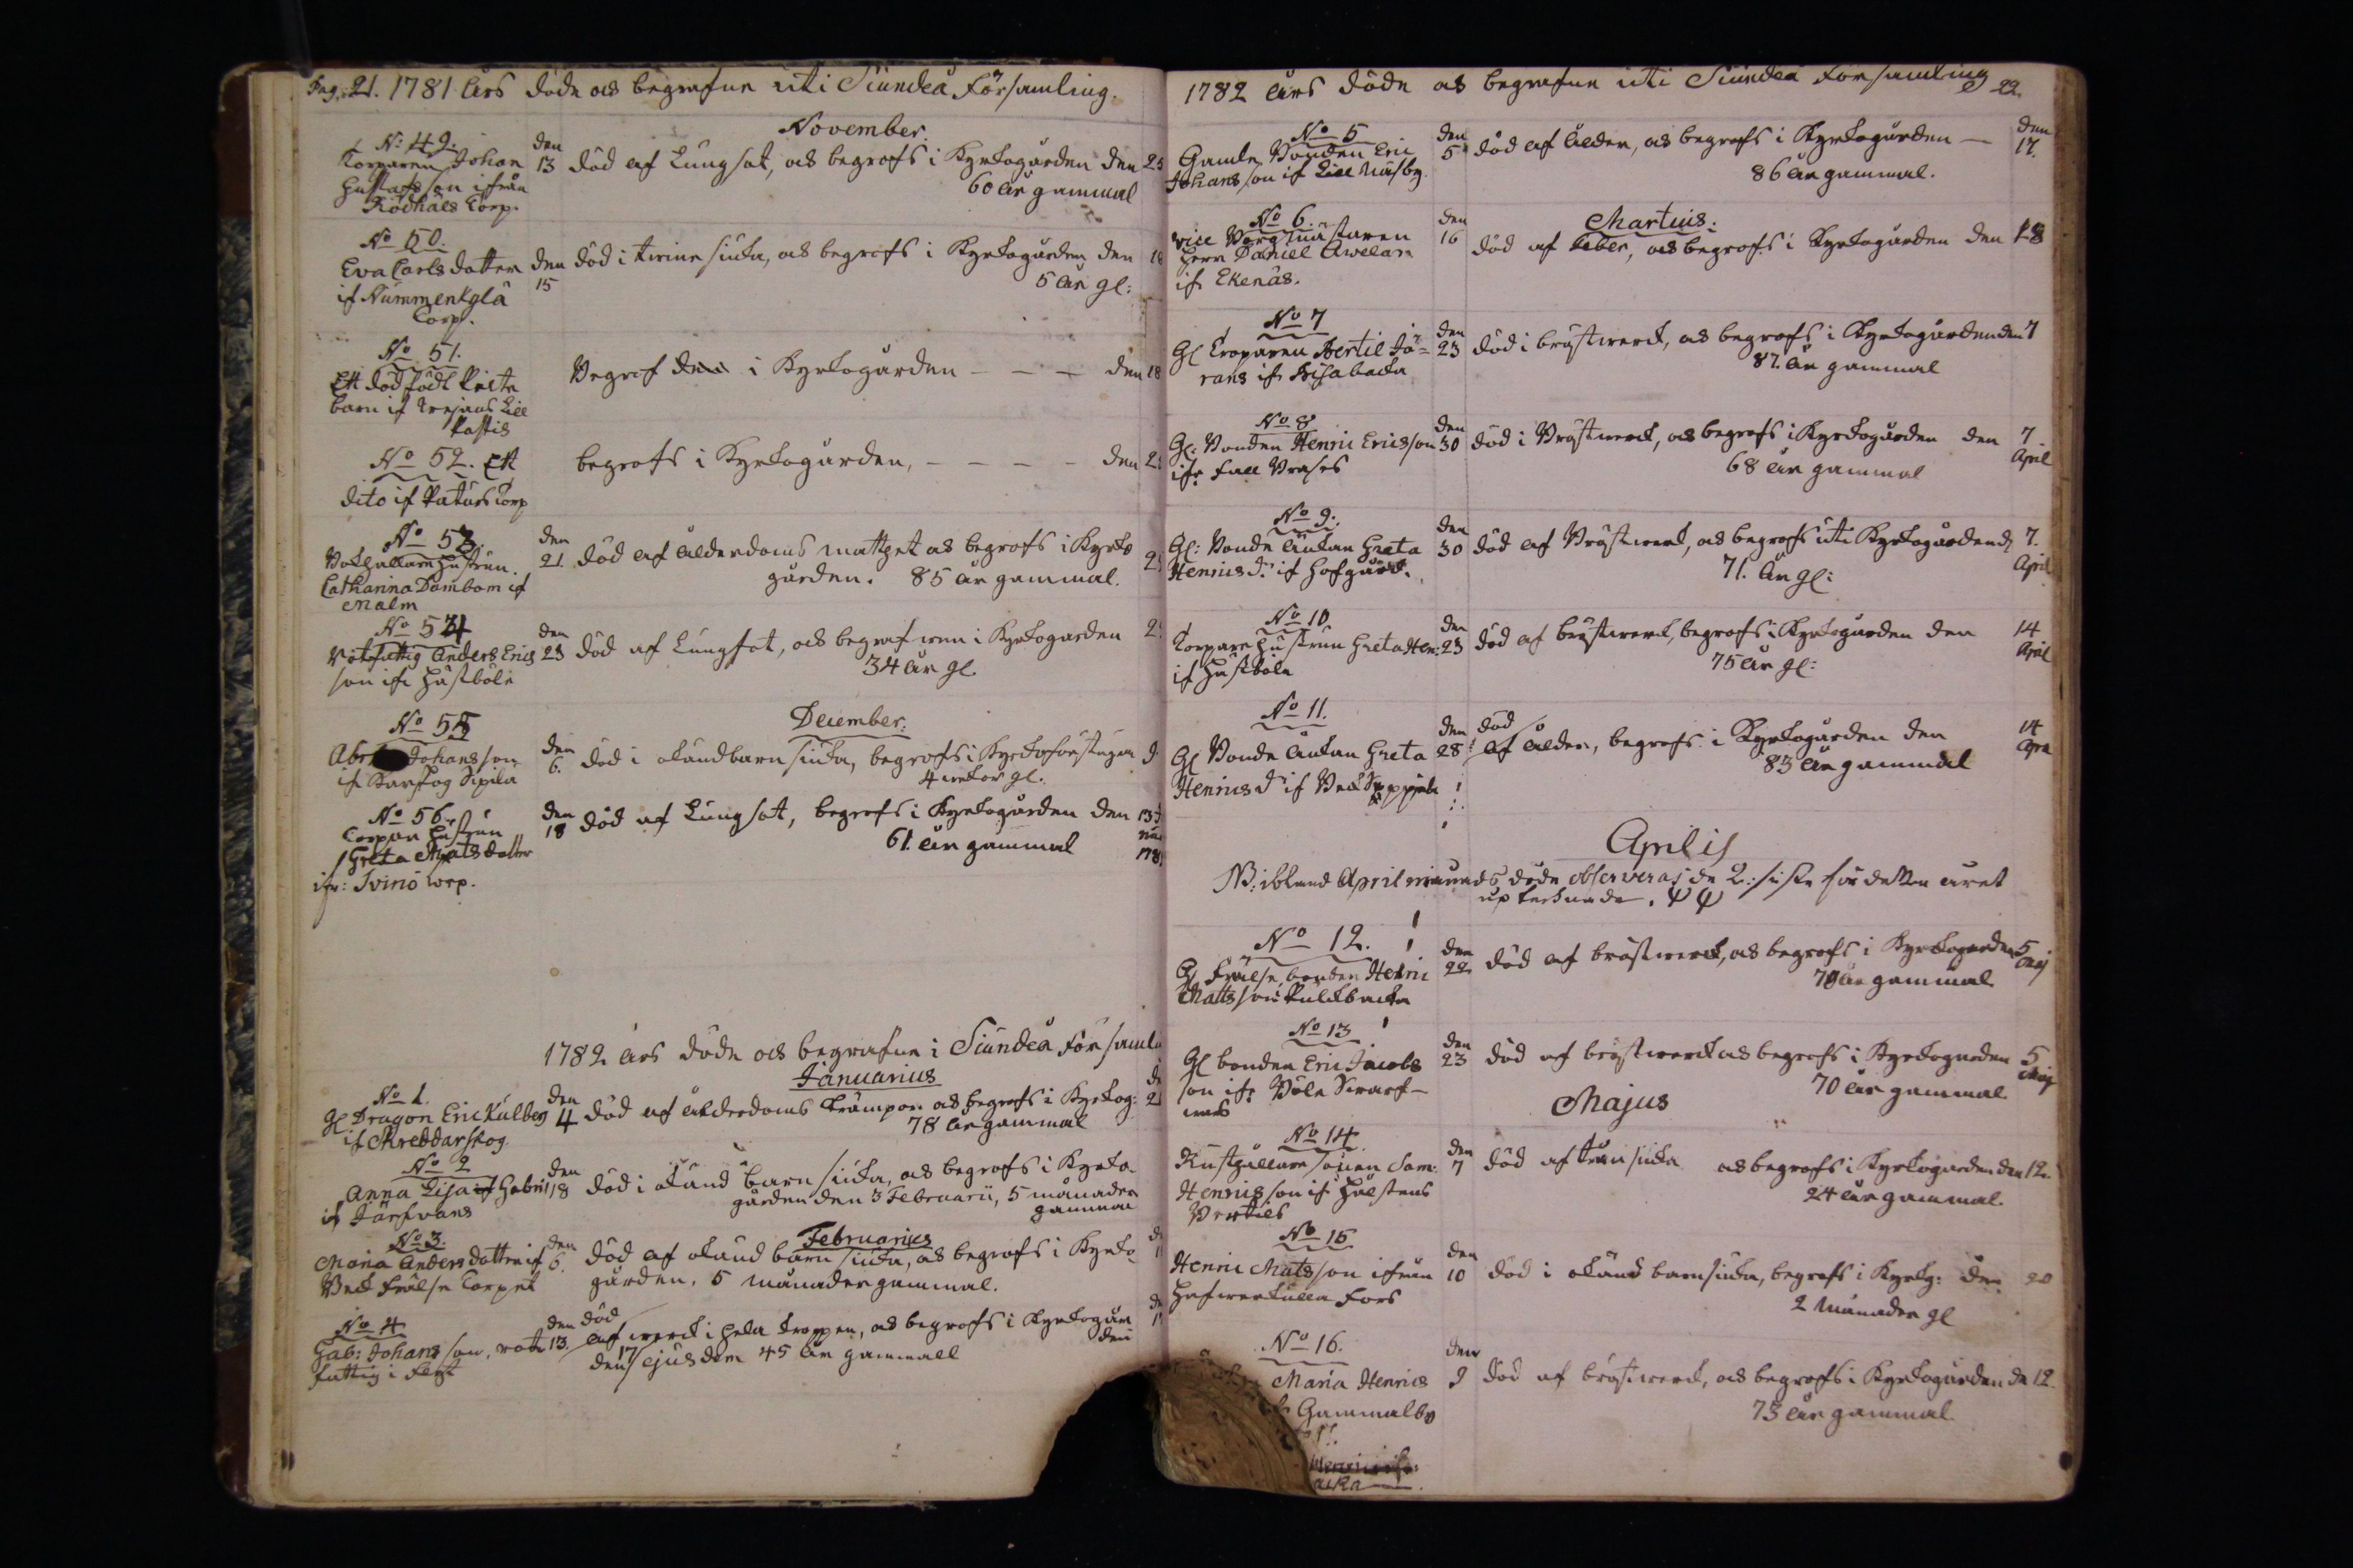 Pag. 21. 1781 års döde och begrafne uti Siundeå Församling.
November.
N: 49.
Torparen Johan
Gustafsson ifrån
Rödhals Torp.
den 13 död af Lungsot, och begrofs i Kyrkogården den 25
60 år gammal
No 50.
Eva Carls dotter
if Nummenkylä
Torp.
den 15 död i twinsiuka, och begrofs i Kyrkogården den 18
5 år gl:
No 51.
Ett dödfödt
barn if Lill
Begrof i Kyrkogården - - - den 18
No 52. Ett
dito if Torp
begrofs i Kyrkogården, - - - - den 2
No 53.
hustrun
Catharina Dambom if
Malm
den 21. död af ålderdoms matthet och begrofs i Kyrko
gården. 85 år gammal.
No 54
Rotefattig Anders Erics
son ifr Hästböle
den 23 död af Lungsot, och begrafwen i Kyrkogården 2
34 år gl.
December.
No 55
Johansson
if Karskog Sipila
den 6. död i okänd barnsiuka, begrofs i Kyrkoförstugan d
4 wekor gl.
No 56.
Torpar hustrun
Greta Mats dotter
ifr: Svinö torp.
den 18 död af Lungsot, begrofs i Kyrkogården den 13
61. år gammal
1782 års döde och begrafne i Siundeå Församl
Januarius
No 1.
Gl Dragon Eric Kulberg
if Skreddarskog
den 4 död af ålderdoms krämpor och begrofs i Kyrkog:
78 år gammal
No 2
Anna Lisa Gabriels
if Järfvans
den 18 död i okänd barnsiuka, och begrofs i Kyrko-
gården den 3 Februarii, 5 månader
gammal
Februarius
No 3.
Maria Andersdotter if
Beck Frälse Torpet
den 6. död af okänd barnsiuka, och begrofs i Kyrko-
gården, 5 månader gammal.
No 4
Gab: Johansson, rote
fattig i
den 13. död
af werck i hela kroppen, och begrofs i Kyrkogår
den
den 17 ejusdem 45 år gammall
1782 års döde och begrafne uti Siundeå Församling 22.
No 5
Gamle Bonden Eric
Johansson if Lill Näsby
den 5 död af ålder, och begrofs i Kyrkogården — den 17.
86 år gammal.
Martius.
No 6.
vice Borgmästaren
Herr Daniel Awelan
if Ekenäs.
den 16 död af feber, och begrofs i Kyrkogården den 18
No 7
Gl Torparen Bertil Jö-
rans if
den 23 död i bröstwerck, och begrofs i Kyrkogården den 7
87. år gammal
No 8
Gl: Bonden Henric Ericsson
ifr: Fall
den 30 död i Bröstwerck, och begrofs i Kyrkogården den 7
April
68 år gammal
No 9.
Gl: Bonde Änkan Greta
Henricsdr. if Hofgård.
den 30 död af Bröstwerck, och begrofs uti Kyrkogården d 7.
April
71. år gl:
No 10
Torpare hustrun Greta Hen:
if Hästböle
den 23 död af bröstwerck, begrofs i Kyrkogården den 14
April
75 år gl:
No 11.
Gl Bonde Änkan Greta
Henricsdr if
den 28 död
af ålder, begrofs i Kyrkogården den 14
83 år gammal
Aprilis
NB: ibland April månads döde observeras de 2: siste för detta året
upteknade.
No 12.
Gl Frälse bonden Henric
Mattsson
den 22 död af bröstwerck, och begrofs i Kyrkogården 5
Maj
70 år gammal
No 13
Gl bonden Eric Jacobs
son ifr Böle
den 23 död af bröstwerck och begrofs i Kyrkogården 5
Maj
70 år gammal
Majus
No 14.
Rusthållare sonen Sam:
Henricsson if
den 7 död af och begrofs i Kyrkogården den 12.
24 år gammal.
No 15
Henric Matsson ifrån
Fors
den 10 död i okänd barnsiuka, begrofs i Kyrkg: den 20
2 Månader gl
No 16.
Maria Henrics
Gammalby
den 9 död af bröstwerck, och begrofs i Kyrkogården de 12.
73 år gammal